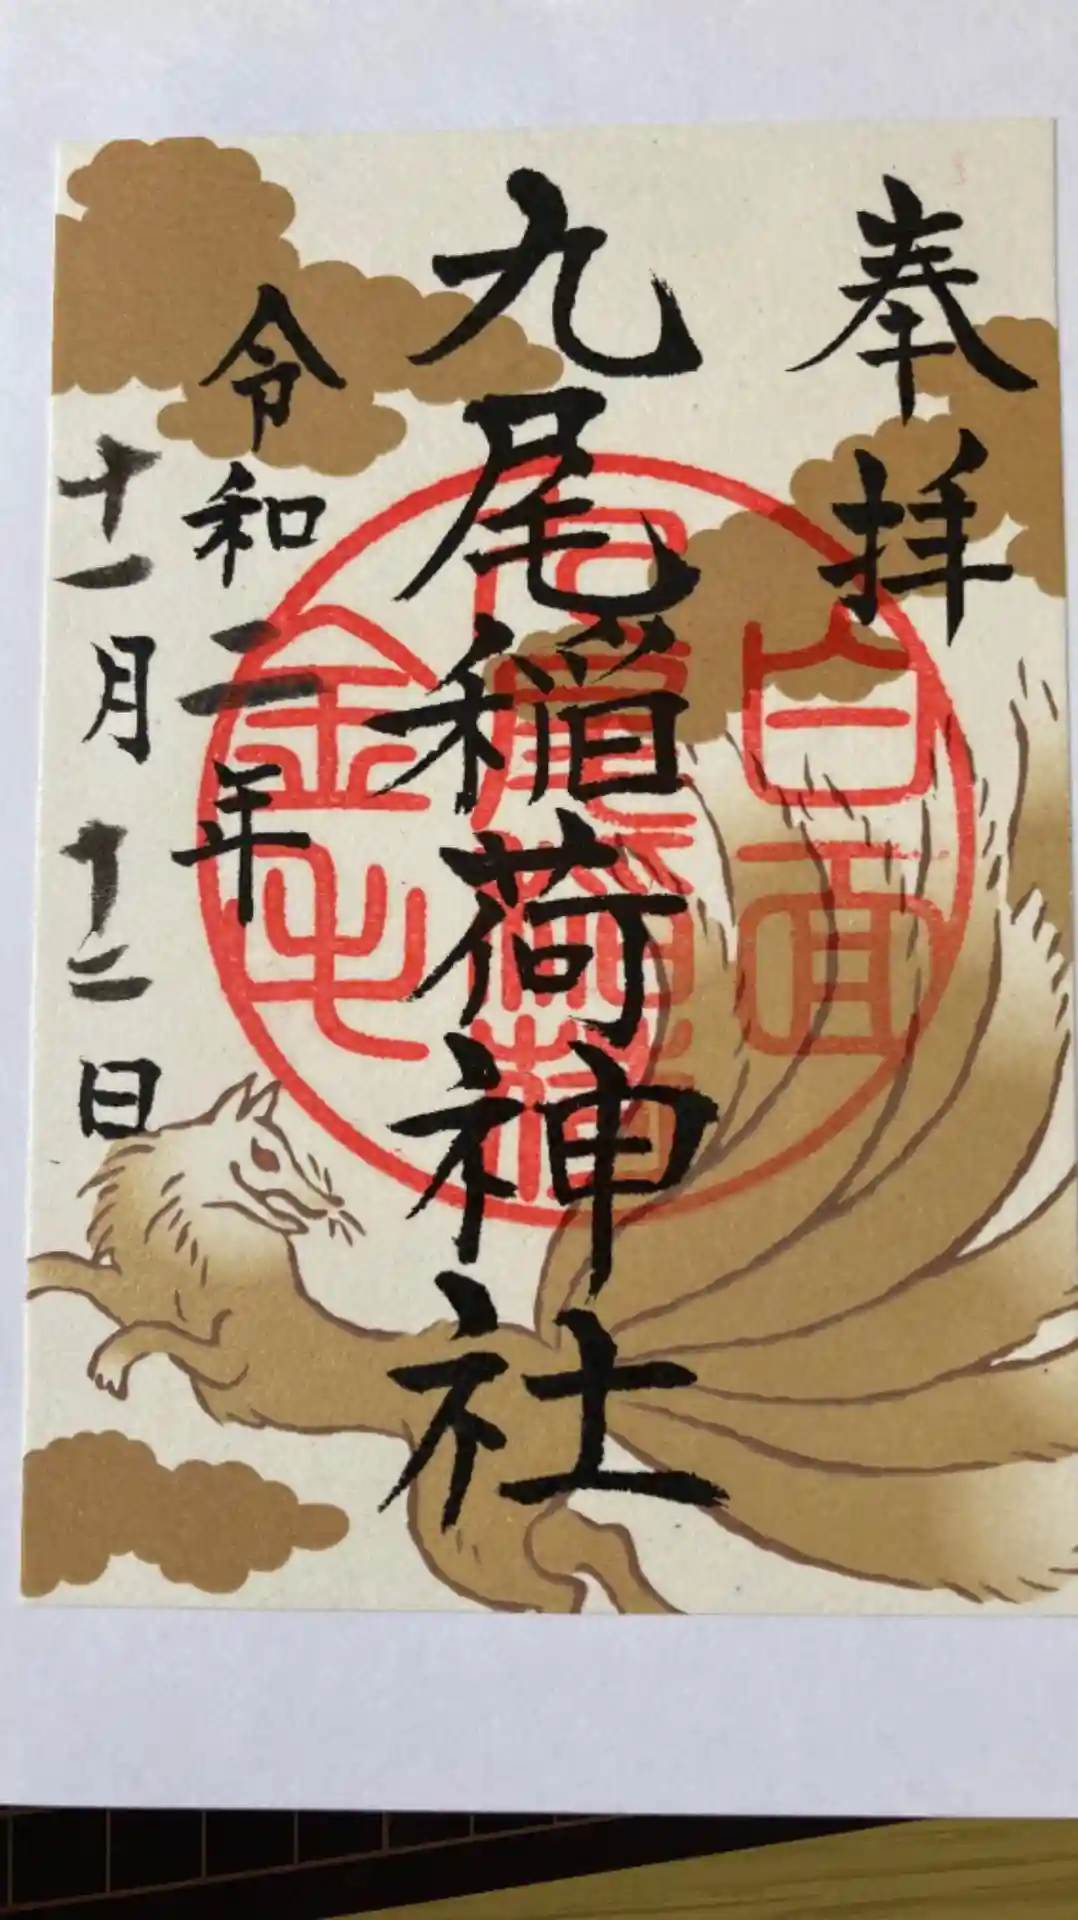 奉拝
九尾稲荷神社
令和二年
十一月十二日
白面
九尾稲荷
金毛